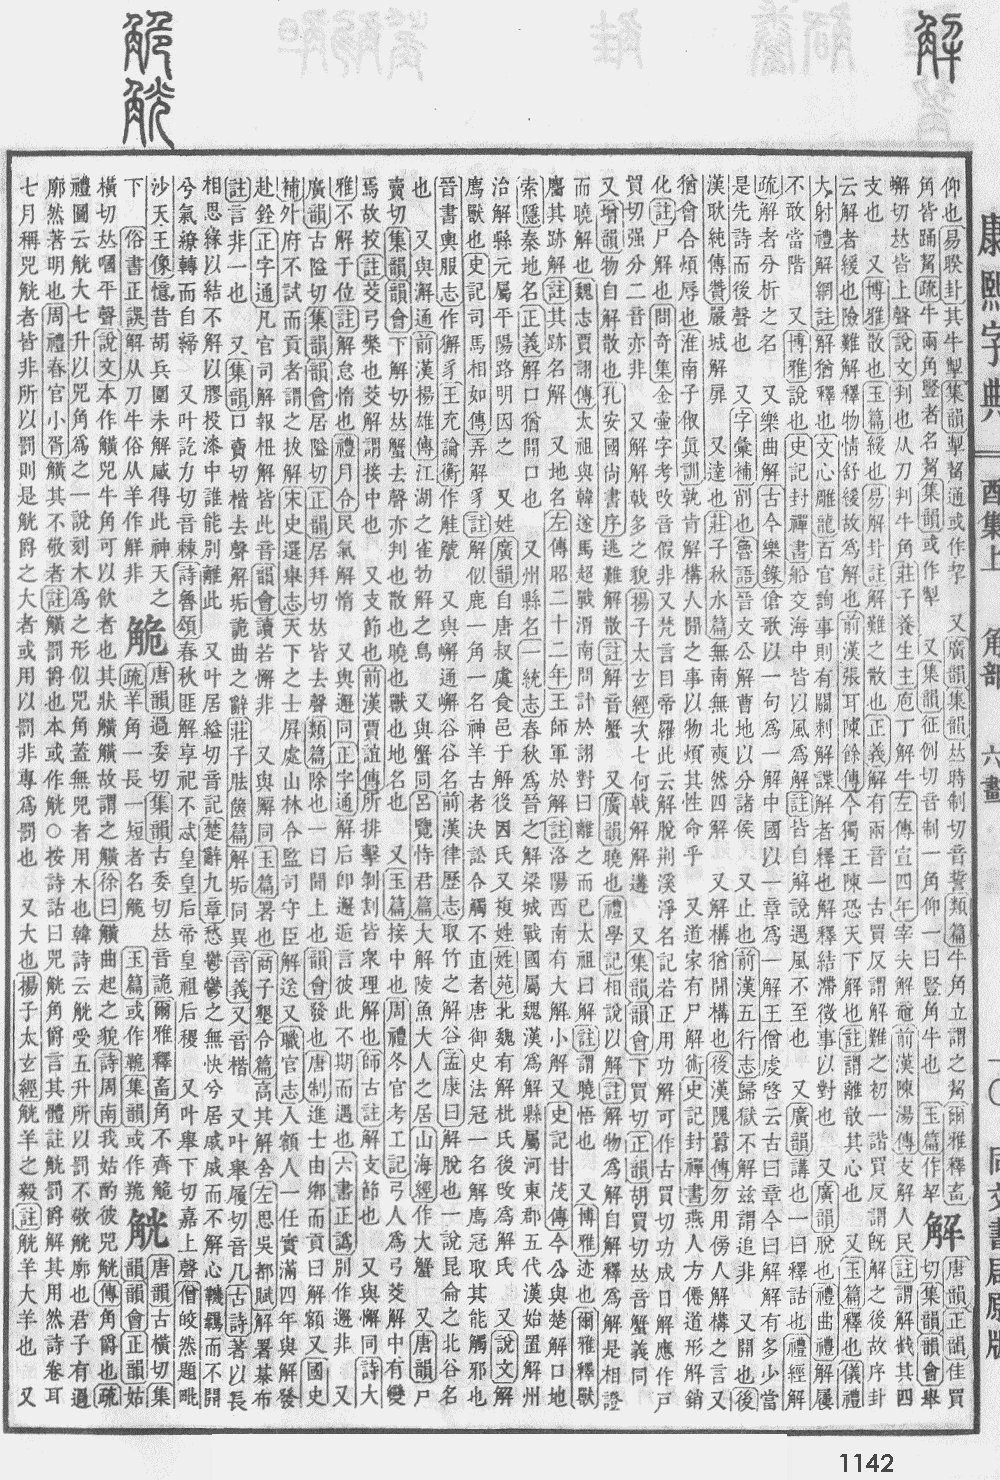 解
觤觥
康熙字典 酉集上 角部 六畫 一一〇 同文書局原版
仰也易睽卦其牛掣集韻掣觢通或作挈 又廣韻集韻𠀤時制切音誓類篇牛角立謂之觢爾雅釋畜
角皆踊觢疏牛兩角豎者名觢集韻或作㓶 又集韻征例切音制一角仰一曰豎角牛也 玉篇作挈
解 唐韻正韻佳買切集韻韻會舉
嶰切𠀤皆上聲說文判也从刀判牛角莊子養生主庖丁解牛左傳宣四年宰夫解黿前漢陳湯傳支解人民註謂解截其四
支也 又博雅散也玉篇緩也易解卦註解難之散也正義解有兩音一古買反謂解難之初一諧買反謂旣解之後故序卦
云解者緩也險難解釋物情舒緩故爲解也前漢張耳陳餘傳今獨王陳恐天下解也註謂離散其心也 又玉篇釋也儀禮
大射禮解綱註解猶釋也文心雕龍百官詢事則有關刺解諜解者釋也解釋結滯徵事以對也 又廣韻脫也禮曲禮解屨
不敢當階 又博雅說也史記封禪書船交海中皆以風爲解註皆自解說遇風不至也 又廣韻講也一曰釋詁也禮經解
疏解者分析之名 又樂曲解古今樂錄傖歌以一句爲一解中國以一章爲一解王僧虔啓云古曰章今曰解解有多少當
是先詩而後聲也 又字彙補削也魯語晉文公解曹地以分諸侯 又止也前漢五行志歸獄不解兹謂追非 又開也後
漢耿純傳贊嚴城解扉 又達也莊子秋水篇無南無北奭然四解 又解構猶閒構也後漢隗囂傳勿用傍人解構之言又
猶會合煩辱也淮南子俶眞訓孰肯解構人閒之事以物煩其性命乎 又道家有尸解術史記封禪書燕人方僊道形解銷
化註尸解也問奇集金壷字考改音假非又梵言目帝羅此云解脫荆溪淨名記若正用功解可作古買切功成日解應作戸
買切强分二音亦非 又解解戟多之貌揚子太玄經次七何戟解解遘 又集韻韻會下買切正韻胡買切𠀤音蟹義同
又增韻物自解散也孔安國尙書序逃難解散註解音蟹 又廣韻曉也禮學記相說以解註解物爲解自解釋爲解是相證
而曉解也魏志賈詡傳太祖與韓遂馬超戰渭南問計於詡對曰離之而已太祖曰解註謂曉悟也 又博雅迹也爾雅釋獸
麕其跡解註其跡名解 又地名左傳昭二十二年王師軍於解註洛陽西南有大解小解又史記甘茂傳今公與楚解口地
索隱秦地名正義解口猶開口也 又州縣名一統志春秋爲晉之解梁城戰國屬魏漢爲解縣屬河東郡五代漢始置解州
治解縣元屬平陽路明因之 又姓廣韻自唐叔虞食邑于解後因氏又複姓姓苑北魏有解枇氏後改爲解氏 又說文解
廌獸也史記司馬相如傳弄解豸註解似鹿一角一名神羊古者決訟令觸不直者唐御史法冠一名解廌冠取其能觸邪也
晉書輿服志作獬豸王充論衡作觟䚦 又與嶰通嶰谷谷名前漢律歷志取竹之解谷孟康曰解脫也一說昆侖之北谷名
也 又與澥通前漢揚雄傳江湖之雀勃解之鳥 又與蟹同呂覽恃君篇大解陵魚大人之居山海經作大蟹 又唐韻戸
賣切集韻韻會下解切𠀤蟹去聲亦判也散也曉也獸也地名也 又玉篇接中也周禮冬官考工記弓人爲弓茭解中有變
焉故挍註茭弓檠也茭解謂接中也 又支節也前漢賈誼傳所排擊剝割皆衆理解也師古註解支節也 又與懈同詩大
雅不解于位註解怠惰也禮月令民氣解惰 又與邂同正字通解后卽邂逅言彼此不期而遇也六書正譌別作邂非 又
廣韻古隘切集韻韻會居隘切正韻居拜切𠀤皆去聲類篇除也一曰聞上也韻會發也唐制進士由鄉而貢曰解額又國史
補外府不試而貢者謂之拔解宋史選舉志天下之士屏處山林令監司守臣解送又職官志人額人一任實滿四年與解發
赴銓正字通凡官司解報杻解皆此音韻會讀若懈非 又與廨同玉篇署也商子墾令篇高其解舍左思吳都賦解署棊布
註言非一也 又集韻口賣切楷去聲解垢詭曲之辭莊子胠篋篇解垢同異音義又音楷 又叶舉履切音几古詩著以長
相思緣以結不解以膠投漆中誰能別離此 又叶居縊切音記楚辭九章愁鬱鬱之無快兮居戚戚而不解心鞿羈而不開
兮氣繚轉而自締 又叶訖力切音棘詩魯頌春秋匪解享祀不忒皇皇后帝皇祖后稷 又叶舉下切嘉上聲僧皎然題毗
沙天王像憶昔胡兵圍未解感得此神天之下 俗書正誤解从刀牛俗从羊作觧非
觤 唐韻過委切集韻古委切𠀤音詭爾雅釋畜角不齊觤疏羊角一長一短者名觤 玉篇或作䤥集韻或作羛
觥 唐韻古橫切集韻韻會正韻姑橫切𠀤㗊平聲說文本作觵兕牛角可以飲者也其狀觵觵故謂之觵徐曰觵曲起之貌詩周南我姑酌彼兕觥傳角爵也疏
禮圖云觥大七升以兕角爲之一說刻木爲之形似兕角蓋無兕者用木也韓詩云觥受五升所以罰不敬觥廓也君子有過
廓然著明也周禮春官小胥觵其不敬者註觵罰爵也本或作觥○按詩詁曰兕觥角爵言其體註觥罰爵解其用然詩卷耳
七月稱兕觥者皆非所以罰則是觥爵之大者或用以罰非專爲罰也 又大也揚子太玄經觥羊之毅註觥羊大羊也 又
1142